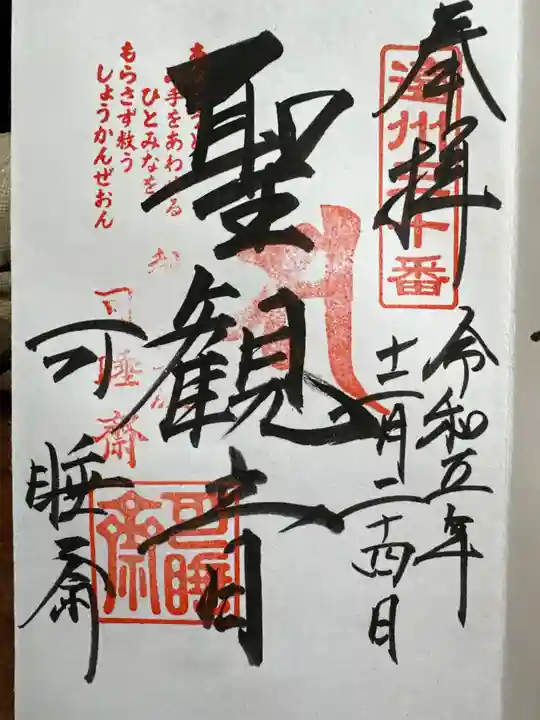 奉拝
遠州三十番
令和五年
十二月二十四日
聖観音
手をあわせる
ひとみなを
もらさず救う
しょうかんぜおん
可睡斎
可睡斎
可睡斎